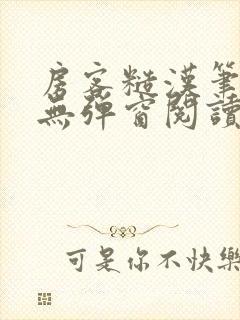 房客糙漢筆
無彈窗閱讀
可是你不快樂